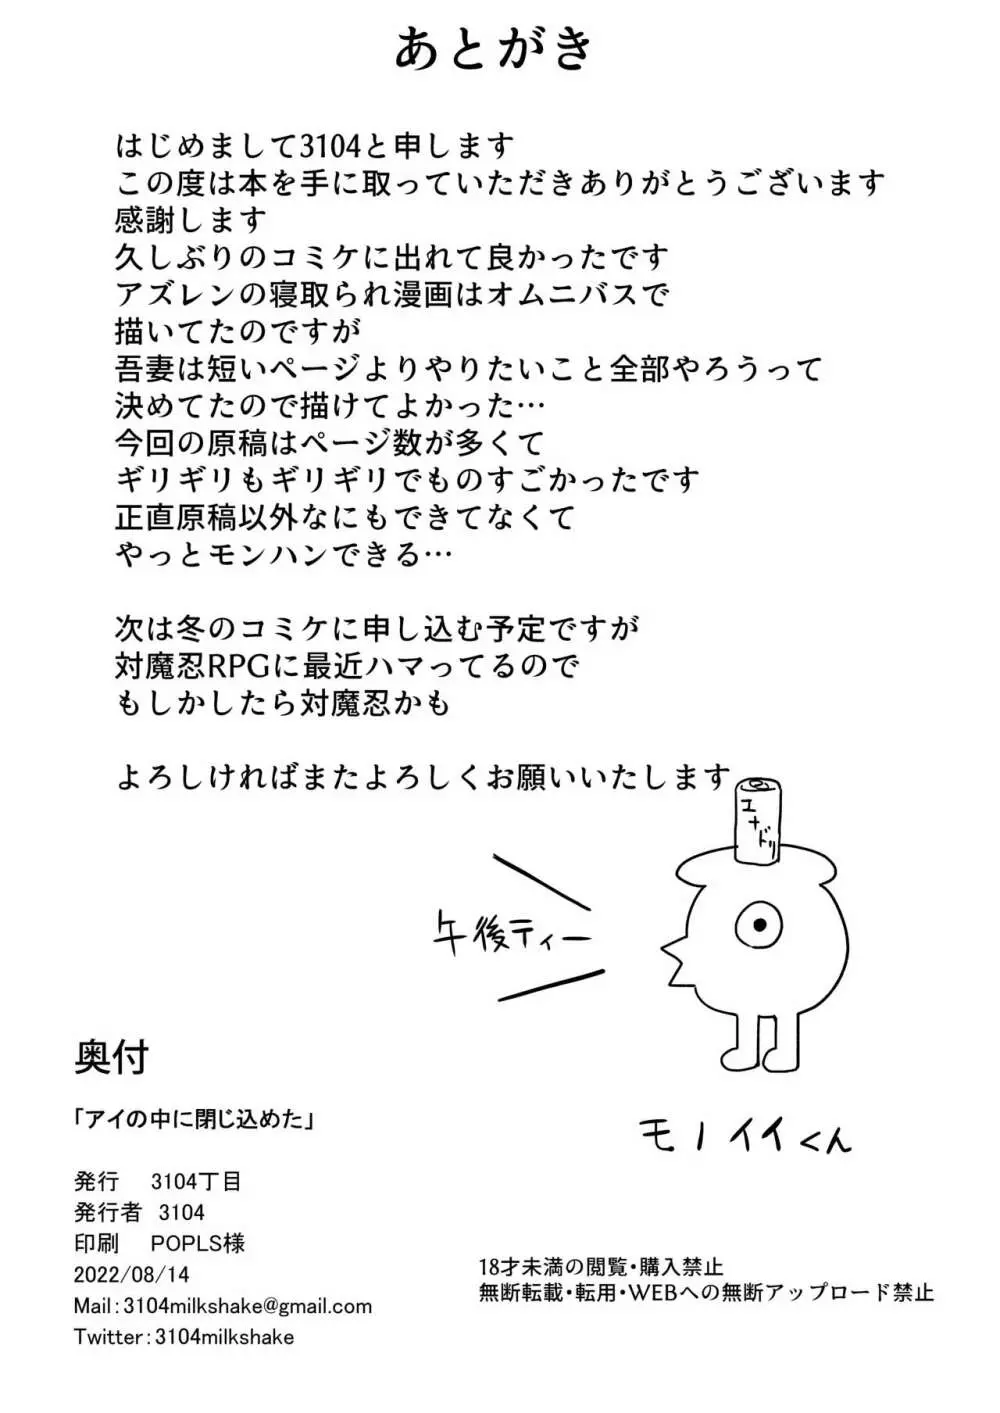 あとがき
はじめまして3104と申します
この度は本を手に取っていただきありがとうございます
感謝します
久しぶりのコミケに出れて良かったです
アズレンの寝取られ漫画はオムニバスで
描いてたのですが
吾妻は短いページよりやりたいこと全部やろうって
決めてたので描けてよかった…
今回の原稿はページ数が多くて
ギリギリもギリギリでものすごかったです
正直原稿以外なにもできてなくて
やっとモンハンできる…
次は冬のコミケに申し込む予定ですが
対魔忍RPGに最近ハマってるので
もしかしたら対魔忍かも
よろしければまたよろしくお願いいたします
エナドリ
午後ティー
モノイイくん
奥付
「アイの中に閉じ込めた」
発行 3104丁目
発行者 3104
印刷 POPLS様
2022/08/14
Mail：3104milkshake@gmail.com
Twitter：3104milkshake
18才未満の閲覧・購入禁止
無断転載・転用・WEBへの無断アップロード禁止